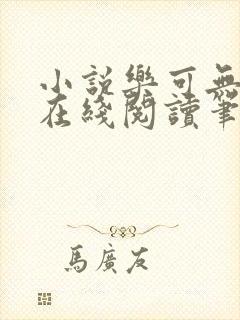 小説樂可無
在綫閱讀筆
馬廣友